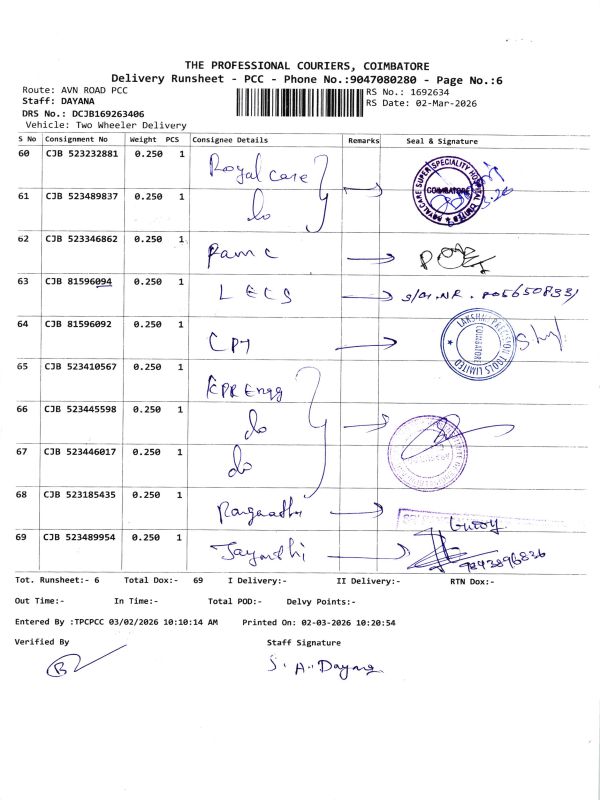 THE PROFESSIONAL COURIERS, COIMBATORE
Delivery Runsheet - PCC - Phone No.:9047080280 - Page No.:6
Route: AVN ROAD PCC
RS No.: 1692634
Staff: DAYANA
RS Date: 02-Mar-2026
DRS No.: DCJB169263406
Vehicle: Two Wheeler Delivery
S No Consignment No Weight PCS Consignee Details Remarks Seal & Signature
60 CJB 523232881 0.250 1 Royal care
ROYAL CARE SUPER SPECIALITY HOSPITAL LIMITED COIMBATORE
61 CJB 523489837 0.250 1 do
62 CJB 523346862 0.250 1
63 CJB 81596094 0.250 1 LECS
64 CJB 81596092 0.250 1 CPT
LAKSHMI PRECISION TOOLS LIMITED (COIMBATORE)
65 CJB 523410567 0.250 1 KPR Engg
66 CJB 523445598 0.250 1 do
67 CJB 523446017 0.250 1 do
68 CJB 523185435 0.250 1
69 CJB 523489954 0.250 1
9243896836
Tot. Runsheet:- 6 Total Dox:- 69 I Delivery:- II Delivery:- RTN Dox:-
Out Time:- In Time:- Total POD:- Delvy Points:-
Entered By :TPCPCC 03/02/2026 10:10:14 AM Printed On: 02-03-2026 10:20:54
Verified By Staff Signature
S. A. Dayana